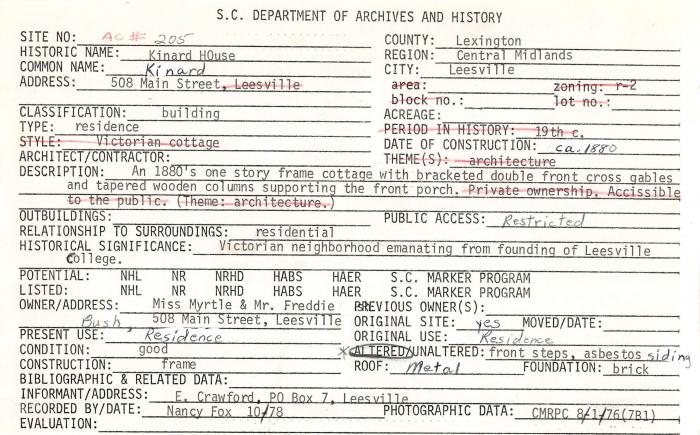 S.C. DEPARTMENT OF ARCHIVES AND HISTORY
SITE NO: AC# 205
HISTORIC NAME: Kinard HOuse
COMMON NAME: Kinard
ADDRESS: 508 Main Street, Leesville
COUNTY: Lexington
REGION: Central Midlands
CITY: Leesville
area: zoning: r-2
block no.: lot no.:
CLASSIFICATION: building
TYPE: residence
STYLE: Victorian cottage
ARCHITECT/CONTRACTOR:
ACREAGE:
PERIOD IN HISTORY: 19th c.
DATE OF CONSTRUCTION: ca. 1880
THEME(S): architecture
DESCRIPTION: An 1880's one story frame cottage with bracketed double front cross gables
and tapered wooden columns supporting the front porch. Private ownership. Accissible
to the public. (Theme: architecture.)
OUTBUILDINGS: PUBLIC ACCESS: Restricted
RELATIONSHIP TO SURROUNDINGS: residential
HISTORICAL SIGNIFICANCE: Victorian neighborhood emanating from founding of Leesville
College.
POTENTIAL: NHL NR NRHD HABS HAER S.C. MARKER PROGRAM
LISTED: NHL NR NRHD HABS HAER S.C. MARKER PROGRAM
OWNER/ADDRESS: Miss Myrtle & Mr. Freddie
Bush, 508 Main Street, Leesville
PREVIOUS OWNER(S):
ORIGINAL SITE: yes MOVED/DATE:
PRESENT USE: Residence
ORIGINAL USE: Residence
CONDITION: good
X ALTERED/UNALTERED: front steps, asbestos siding
CONSTRUCTION: frame
ROOF: Metal FOUNDATION: brick
BIBLIOGRAPHIC & RELATED DATA:
INFORMANT/ADDRESS: E. Crawford, PO Box 7, Leesville
RECORDED BY/DATE: Nancy Fox 10/78 PHOTOGRAPHIC DATA: CMRPC 8/1/76(7B1)
EVALUATION: